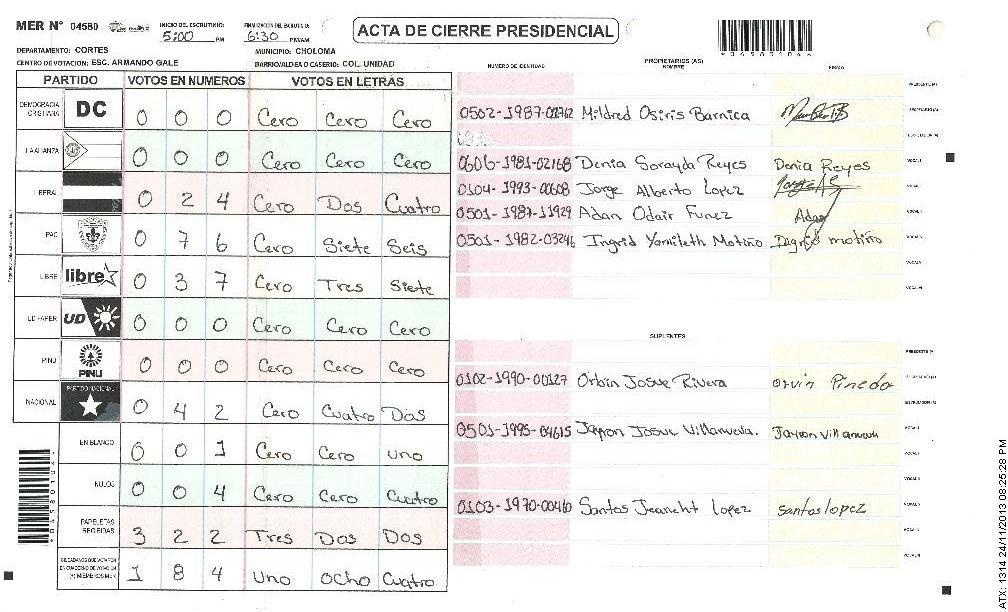 MER N° 04580 INICIO DEL ESCRUTINIO: 5:00 PM FINALIZACION DEL ESCRUTINIO: 6:30 PM/AM ACTA DE CIERRE PRESIDENCIAL
DEPARTAMENTO: CORTES MUNICIPIO: CHOLOMA
CENTRO DE VOTACION: ESC. ARMANDO GALE BARRIO/ALDEA O CASERIO: COL. UNIDAD
PARTIDO VOTOS EN NUMEROS VOTOS EN LETRAS
DEMOCRACIA CRISTIANA DC 0 0 0 Cero Cero Cero
LA ALIANZA 0 0 0 Cero Cero Cero
LIBERAL 0 2 4 Cero Dos Cuatro
PAC 0 7 6 Cero Siete Seis
LIBRE libre 0 3 7 Cero Tres Siete
UD FAPER UD 0 0 0 Cero Cero Cero
PINU PINU 0 0 0 Cero Cero Cero
NACIONAL PARTIDO NACIONAL 0 4 2 Cero Cuatro Dos
EN BLANCO 0 0 1 Cero Cero uno
NULOS 0 0 4 Cero Cero Cuatro
PAPELETAS RECIBIDAS 3 2 2 Tres Dos Dos
1 8 4 Uno Ocho Cuatro
PROPIETARIOS (AS)
NUMERO DE IDENTIDAD NOMBRE FIRMA
PRESIDENTE (A)
0502-1987-00762 Mildred Osiris Barnica SECRETARIO (A)
ESCRUTADOR (A)
0606-1981-02168 Denia Sorayda Reyes Denia Reyes VOCAL I
0104-1993-00608 Jorge Alberto Lopez VOCAL II
0501-1987-11929 Adan Odair Funez Adan VOCAL III
0501-1982-03246 Ingrid Yamileth Motiño Ingrid motiño VOCAL IV
VOCAL V
SUPLENTES
PRESIDENTE (A)
0102-1990-00127 Orbin Josue Rivera orvin Pinedo SECRETARIO (A)
ESCRUTADOR (A)
0501-1995-04615 Jayron Josue Villanueva. Jayron Villanueva VOCAL I
VOCAL II
0103-1970-00460 Santos Jeancht Lopez santos lopez
*04580104*
*04580104*
ATX: 1314 24/11/2013 08:25:28 PM